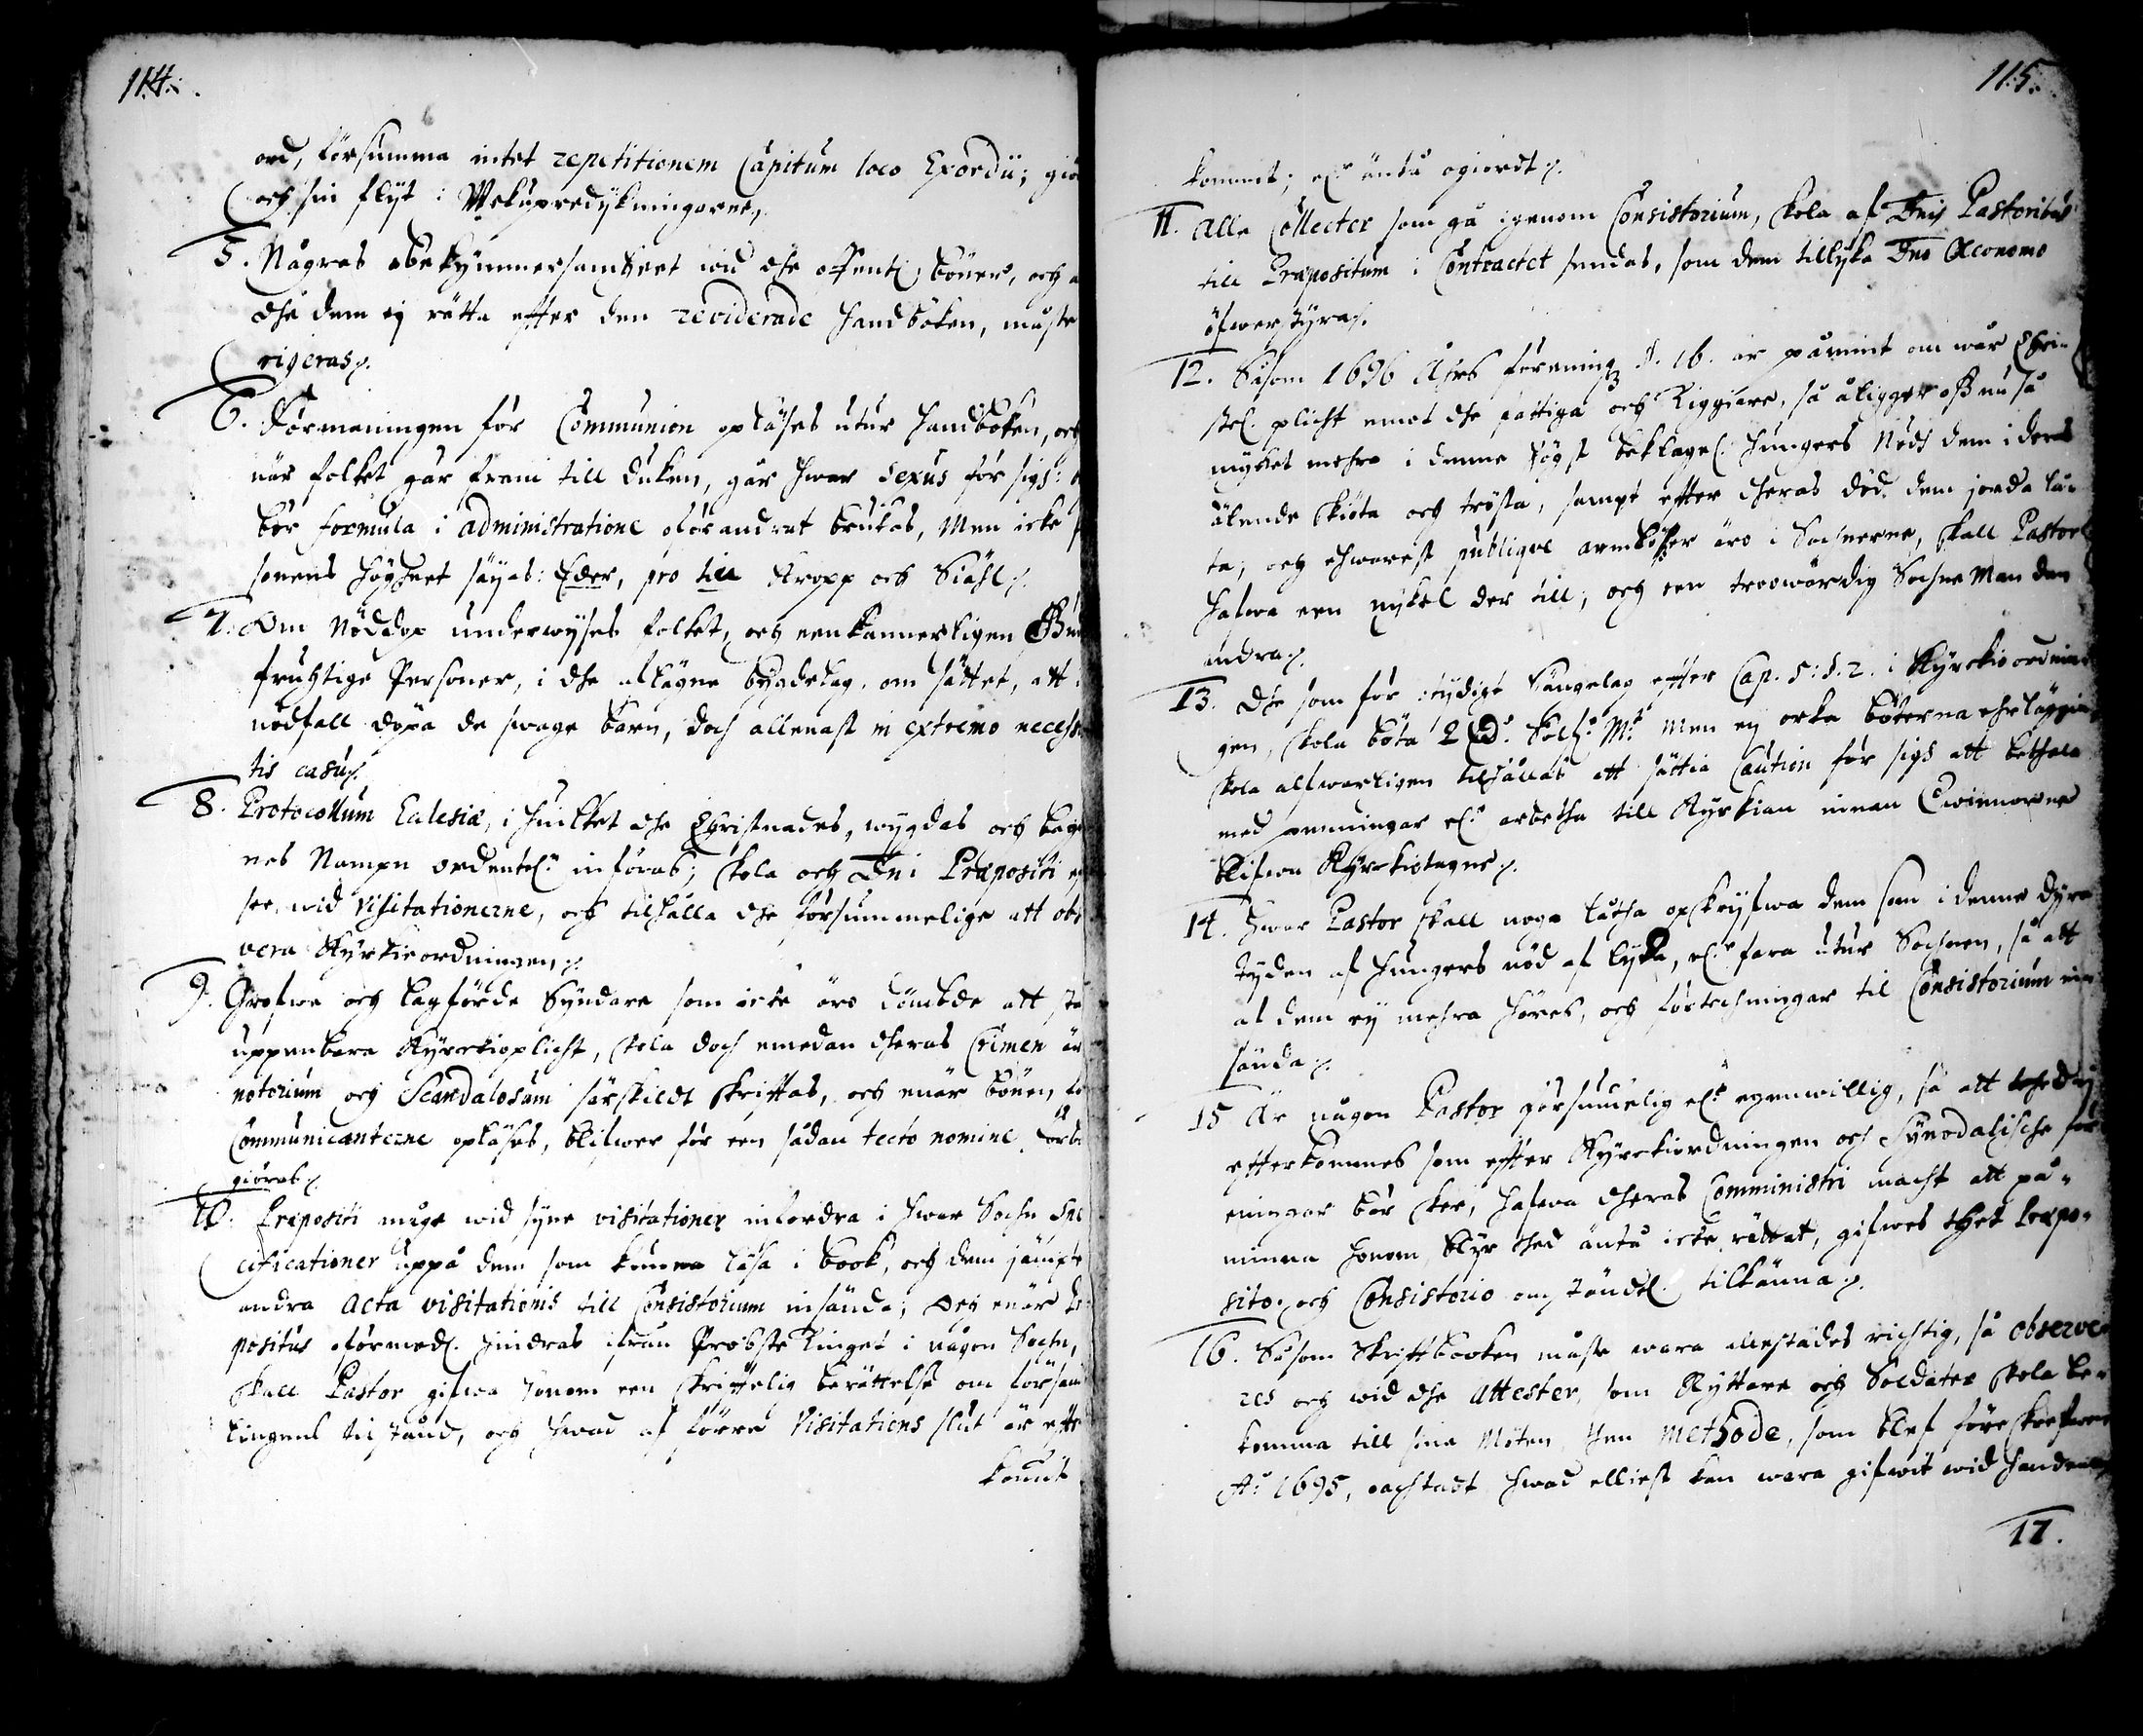 114.
ord, försumma intet repetitionem Capitum loco Exordii; giö
och sin flijt i Wekupredijkningarne.
5. Någras obekymmersamheet wid dhe offentl: böner, och a
dhe dem ej rätta effter den reviderade Handboken, måste
rigeras.
6. Förmaningen för Communion opläses utur Handboken, och
när folket går fram till duken, går hwar Sexus för sigh:
bör formula i administratione oförandrat brukas, Men icke
sonens högheet säyas: Eder, pro till Kropp och Siähl.
7. Om Nöddop underwijses folket, och eenkannerligen Gud
fruchtige Personer, i dhe aflägne bygdelag, om sättet, att
nödfall döpa de swage barn, doch allenast in extremo necessi
tis casu.
8. Protocollum Eclesiæ, i huilket dhe Christnades, wygdas och begr
nes Nampn ordentel: införas; skola och Dni Præpositi
see, wid Visitationerne, och tilhålla dhe försummelige att obs
vera Kyrkieordningen.
9. Grofwe och lagförde Syndare som icke äro dömbde att stå
uppenbara Kyrckioplicht, skola doch emedan dheras Crimen är
notorium och Scandalosum särskildt skrifftas, och enär bönen, fö
Communicanterne opläses, blifwer för een sådan tecto nomine förb
giöras.
10. Præpositi måge wid syne visitationer infordra i hwar Sochn Spe
cificationer uppå dem som kunna läsa i book, och dem jämpte
andra Acta visitationis till Consistorium insända; Och enär Præ
positus oförmod: hindras ifrån Probste Tinget i någon Sochn,
skall Pastor gifwa honom een skrifftelig berättelse om försam
lingens tilstånd, och hwad af förre Visitations slut är effte
kommit
115.
kommit; el: ändå ogiordt.
11. Alla Collecter som gå igenom Consistorium, skola af Dnis Pastoribus
till Præpositum i Contractet sendas, som dem tillyka Dno Œconomo
öfwerstyra.
12. Såsom 1696 Åhrs förening §. 16. är påmint om wår Chri-
stel: plicht emot dhe fattiga och Tiggiare, så åligger oß nu så
mycket mehra i denne högst beklagel: hungers Nödh dem i deras
älende skiöta och trösta, sampt effter dheras död dem jorda låu
ta; och ehwarest publique armbößer äro i Sochnerne, skall Pastor
hafwa een nykel der till, och een trowärdig Sochne Man den
andra.
13. Dhe som för otydigt Sängelag effter Cap. 5: §. 2. i Kyrckio ordnin
gen, skola böta 2 D: Sölf: Mt men ej orka böterna ehrläggia
skola alfwarligen tilhållas att sättia Caution för sigh att bethala
med penningar el: arbetha till Kyrkian innan Qwinnorne
blifwa Kyrckiotagne.
14. Hwar Pastor skall noga låtha opskryfwa dem som i denne dyra
tyden af hungers nöd af lyda, el: fara utur Sochnen, så att
af dem ej mehra höres, och förtechningar til Consistorium in
sända.
15 Är någon Pastor försumelig el: egenwillig, så att thed ej
efterkommes som effter Kyrckiordningen och Synodalische för
eningar bör skee, hafwa dheras Comministri macht att på-
minna honom, blyr thed ändå icke rättat, gifwes thet Præpo-
sito och Consistorio omständel: tilkänna.
16. Såsom Skrifftbooken måste wara allestädes richtig, så observe-
res och wid dhe attester, som Ryttare och Soldater skola be-
komma till sine Möten, then methode, som blef föreskrefwen
Ao 1695, oachtadt hwad elliest kan wara gifwit wid handen
17.